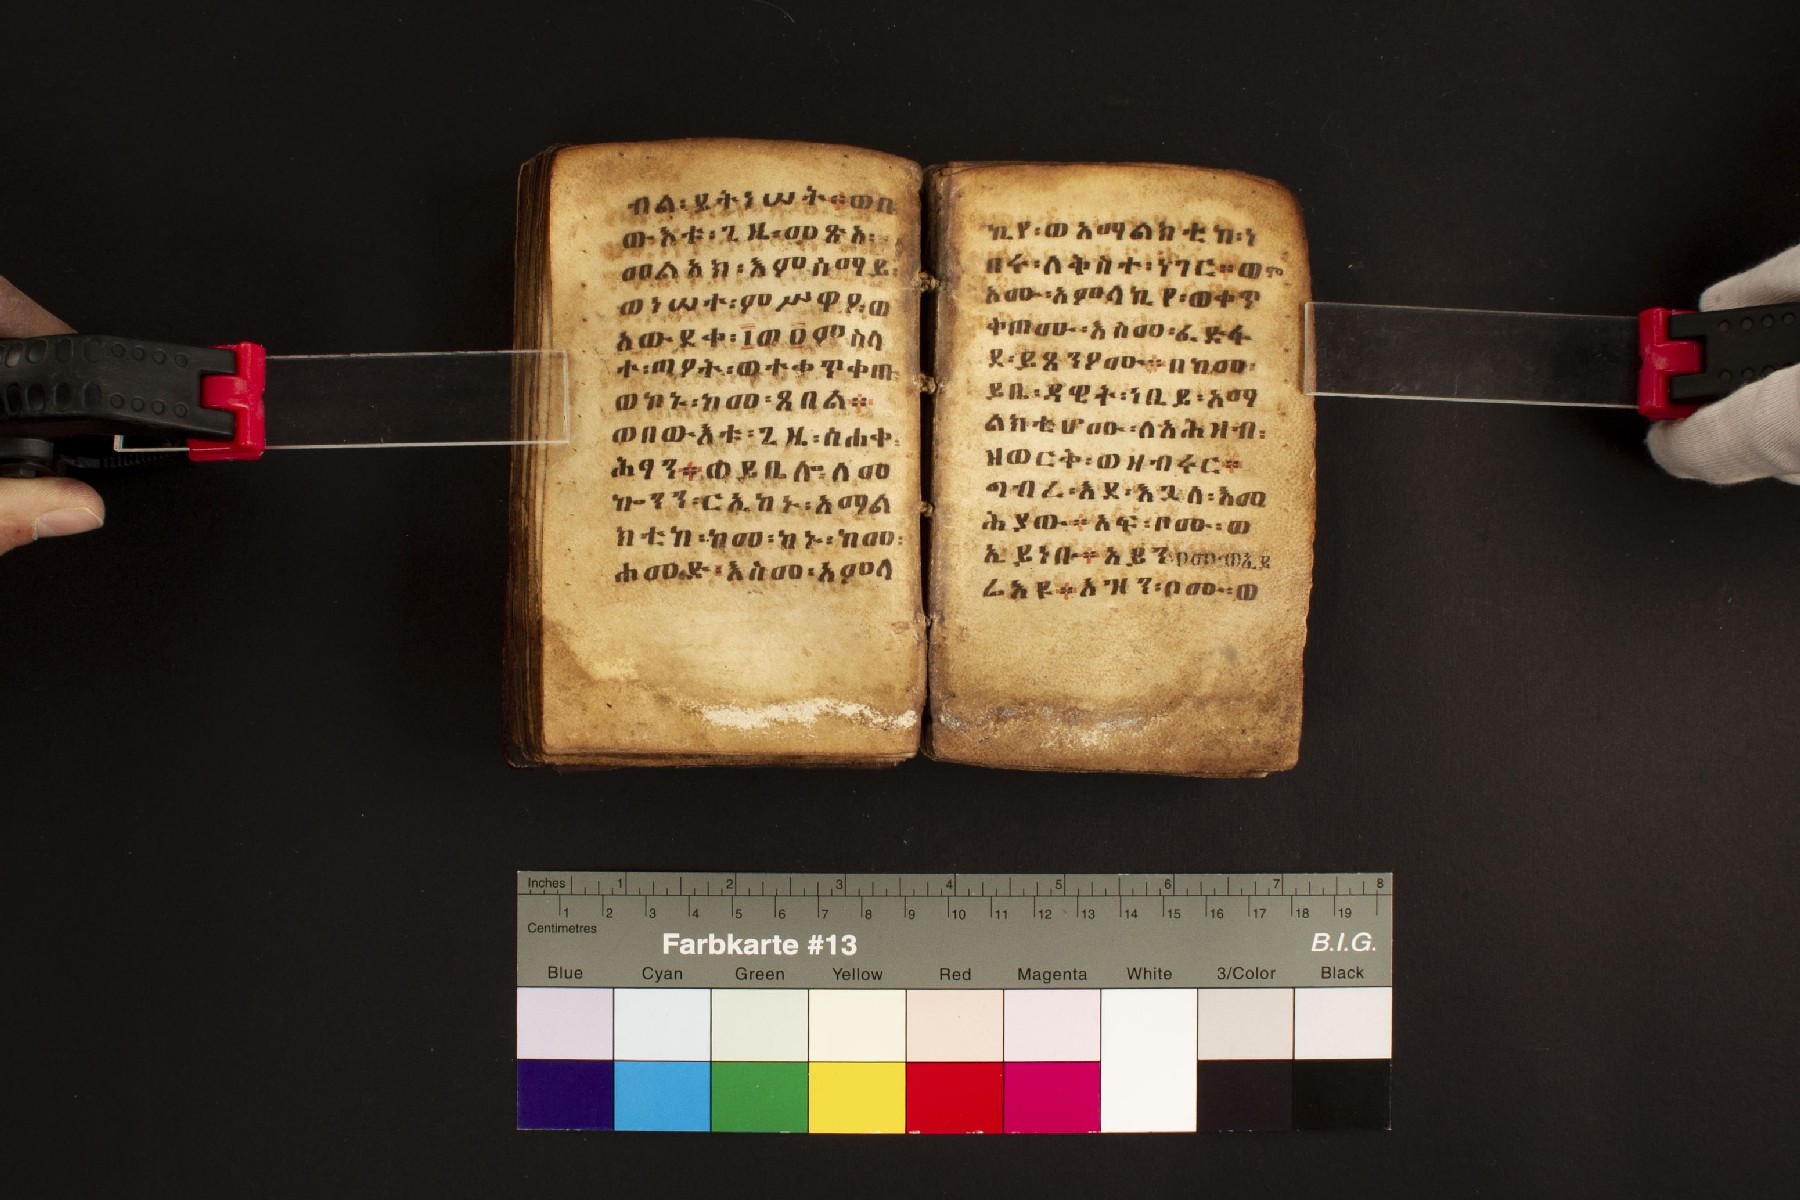 ብል፡ ይትነሠት። ወበ
ውእቱ፡ ጊዜ፡ መጽአ፡
መልአክ፡ እምሰማይ፡
ወነሠተ፡ ምሥዋዖ፡ ወ
አውደቀ፡ ፲ወ፬ምስለ
ተ፡ ጣዖት፡ ወተቀጥቀጠ
ወኮኑ፡ ከመ፡ ጸበል።
ወበውእቱ፡ ጊዜ፡ ሰሐቀ፡
ሕፃን። ወይቤሎ፡ ለመ
ኰንን፡ ርኢከኑ፡ አማል
ክቲከ፡ ከመ፡ ኮኑ፡ ከመ፡
ሐመድ። እስመ፡ አምላ
ኪየ፡ ወአማልክቲከ፡ ነ
በሩ፡ ለቅስተ፡ ነገር። ወሞ
አሙ፡ አምላኪየ፡ ወቀጥ
ቀጠሙ፡ እስመ፡ ፈድፋ
ደ፡ ይጸንዖሙ። በከመ፡
ይቤ፡ ዳዊት፡ ነቢይ፡ አማ
ልክቲሆሙ፡ ለአሕዛብ፡
ዘወርቅ፡ ወዘብሩር።
ግብረ፡ እደ፡ እጓለ፡ እመ
ሕያው። አፍ፡ ቦሙ፡ ወ
ኢይነቡ። አይን፡ ቦሙ፡ ወኢይ
ሬእዩ። እዝን፡ ቦሙ፡ ወ
Inches 1 2 3 4 5 6 7 8
1 2 3 4 5 6 7 8 9 10 11 12 13 14 15 16 17 18 19
Centimetres
Farbkarte #13 B.I.G.
Blue Cyan Green Yellow Red Magenta White 3/Color Black